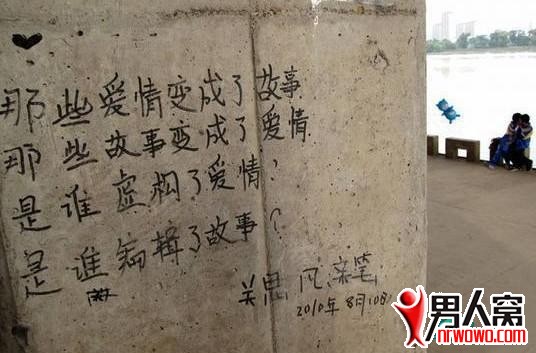 那些爱情变成了故事
那些故事变成了爱情
是谁虚构了爱情,
是谁编辑了故事?
关思风亲笔
2010年8月10日
男人窝
nrwowo.com